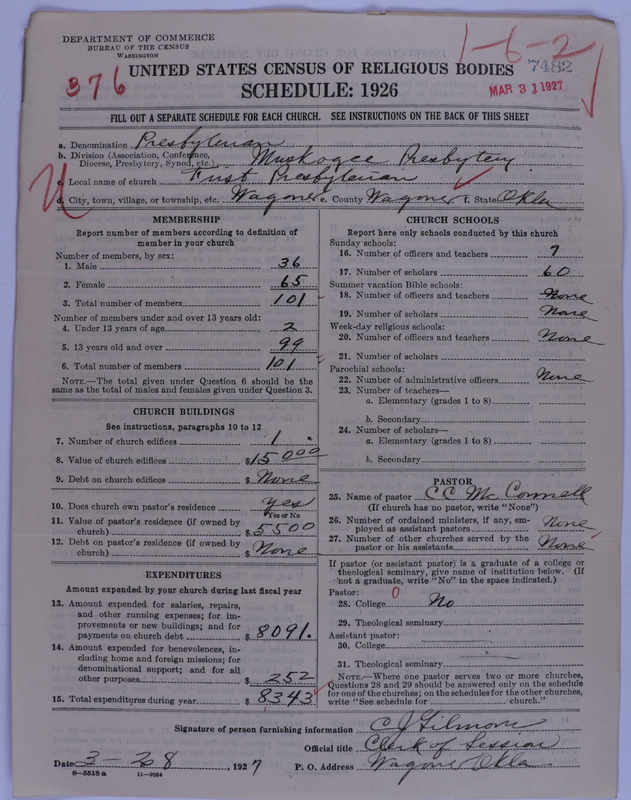 DEPARTMENT OF COMMERCE
BUREAU OF THE CENSUS
WASHINGTON
376
1-6-2
7482
MAR 31 1927
UNITED STATES CENSUS OF RELIGIOUS BODIES
SCHEDULE: 1926
FILL OUT A SEPARATE SCHEDULE FOR EACH CHURCH. SEE INSTRUCTIONS ON THE BACK OF THIS SHEET
a. Denomination Presbyterian
b. Division (Association, Conference, Diocese, Presbytery, Synod, etc.) Muskogee Presbytery
c. Local name of church First Presbyterian
d. City, town, village, or township, etc. Wagoner e. County Wagoner f. State Okla
MEMBERSHIP
Report number of members according to definition of
member in your church
Number of members, by sex:
1. Male 36
2. Female 65
3. Total number of members 101
Number of members under and over 13 years old:
4. Under 13 years of age 2
5. 13 years old and over 99
6. Total number of members 101
NOTE.—The total given under Question 6 should be
same as the total of males and females given under Question 3.
CHURCH BUILDINGS
See instructions, paragraphs 10 to 12
7. Number of church edifices 1
8. Value of church edifices $15000
9. Debt on church edifices $ None
10. Does church own pastor's residence yes
Yes or No
11. Value of pastor's residence (if owned by
church) $5500
12. Debt on pastor's residence (if owned by
church) $ None
EXPENDITURES
Amount expended by your church during last fiscal year
13. Amount expended for salaries, repairs,
and other running expenses; for im-
provements or new buildings; and for
payments on church debt $8091.
14. Amount expended for benevolences, in-
cluding home and foreign missions; for
denominational support; and for all
other purposes $252
15. Total expenditures during year $8343
CHURCH SCHOOLS
Report here only schools conducted by this church
Sunday schools:
16. Number of officers and teachers 7
17. Number of scholars 60
Summer vacation Bible schools:
18. Number of officers and teachers None
19. Number of scholars None
Week-day religious schools:
20. Number of officers and teachers None
21. Number of scholars
Parochial schools:
22. Number of administrative officers None
23. Number of teachers—
a. Elementary (grades 1 to 8)
b. Secondary
24. Number of scholars—
a. Elementary (grades 1 to 8)
b. Secondary
PASTOR
25. Name of pastor C C McConnell
(If church has no pastor, write "None")
26. Number of ordained ministers, if any, em-
ployed as assistant pastors None
27. Number of other churches served by the
pastor or his assistants None
If pastor (or assistant pastor) is a graduate of a college or
theological seminary, give name of institution below. (If
not a graduate, write "No" in the space indicated.)
Pastor:
28. College 0 No
29. Theological seminary
Assistant pastor:
30. College
31. Theological seminary
NOTE.—Where one pastor serves two or more churches,
Questions 28 and 29 should be answered only on the schedule
for one of the churches; on the schedules for the other churches,
write "See schedule for church."
Signature of person furnishing information C J Gilmore
Official title Clerk of Session
Date 3-28, 1927 P. O. Address Wagoner Okla
8-5518 a 11-9054